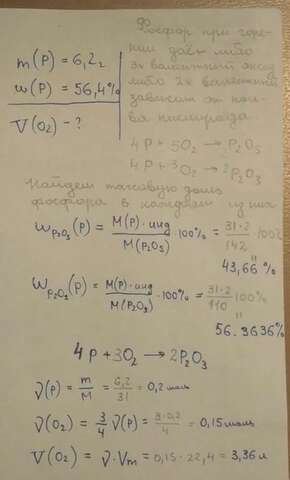 m(P) = 6,2г
w(P) = 56,4%
V(O₂) - ?
Фосфор при горе-
нии даёт либо
3х валентный оксид
либо
валентный
зависит от кол-
ва кислорода.
4P + 5O₂ → P₂O₅
4P + 3O₂ → 2P₂O₃
Найдем массовую долю
фосфора в каждом из них
W P₂O₅ (P) = M(P)·инд / M(P₂O₅) · 100% = 31·2 / 142 · 100%
"
43,66 %
W P₂O₃ (P) = M(P)·инд / M(P₂O₃) · 100% = 31·2 / 110 · 100%
"
56.3636%
4P + 3O₂ → 2P₂O₃
ν(P) = m / M = 6,2 / 31 = 0,2 моль
ν(O₂) = 3/4 ν(P) = 3·0,2 / 4 = 0,15 моль
V(O₂) = ν·Vm = 0,15·22,4 = 3,36 л